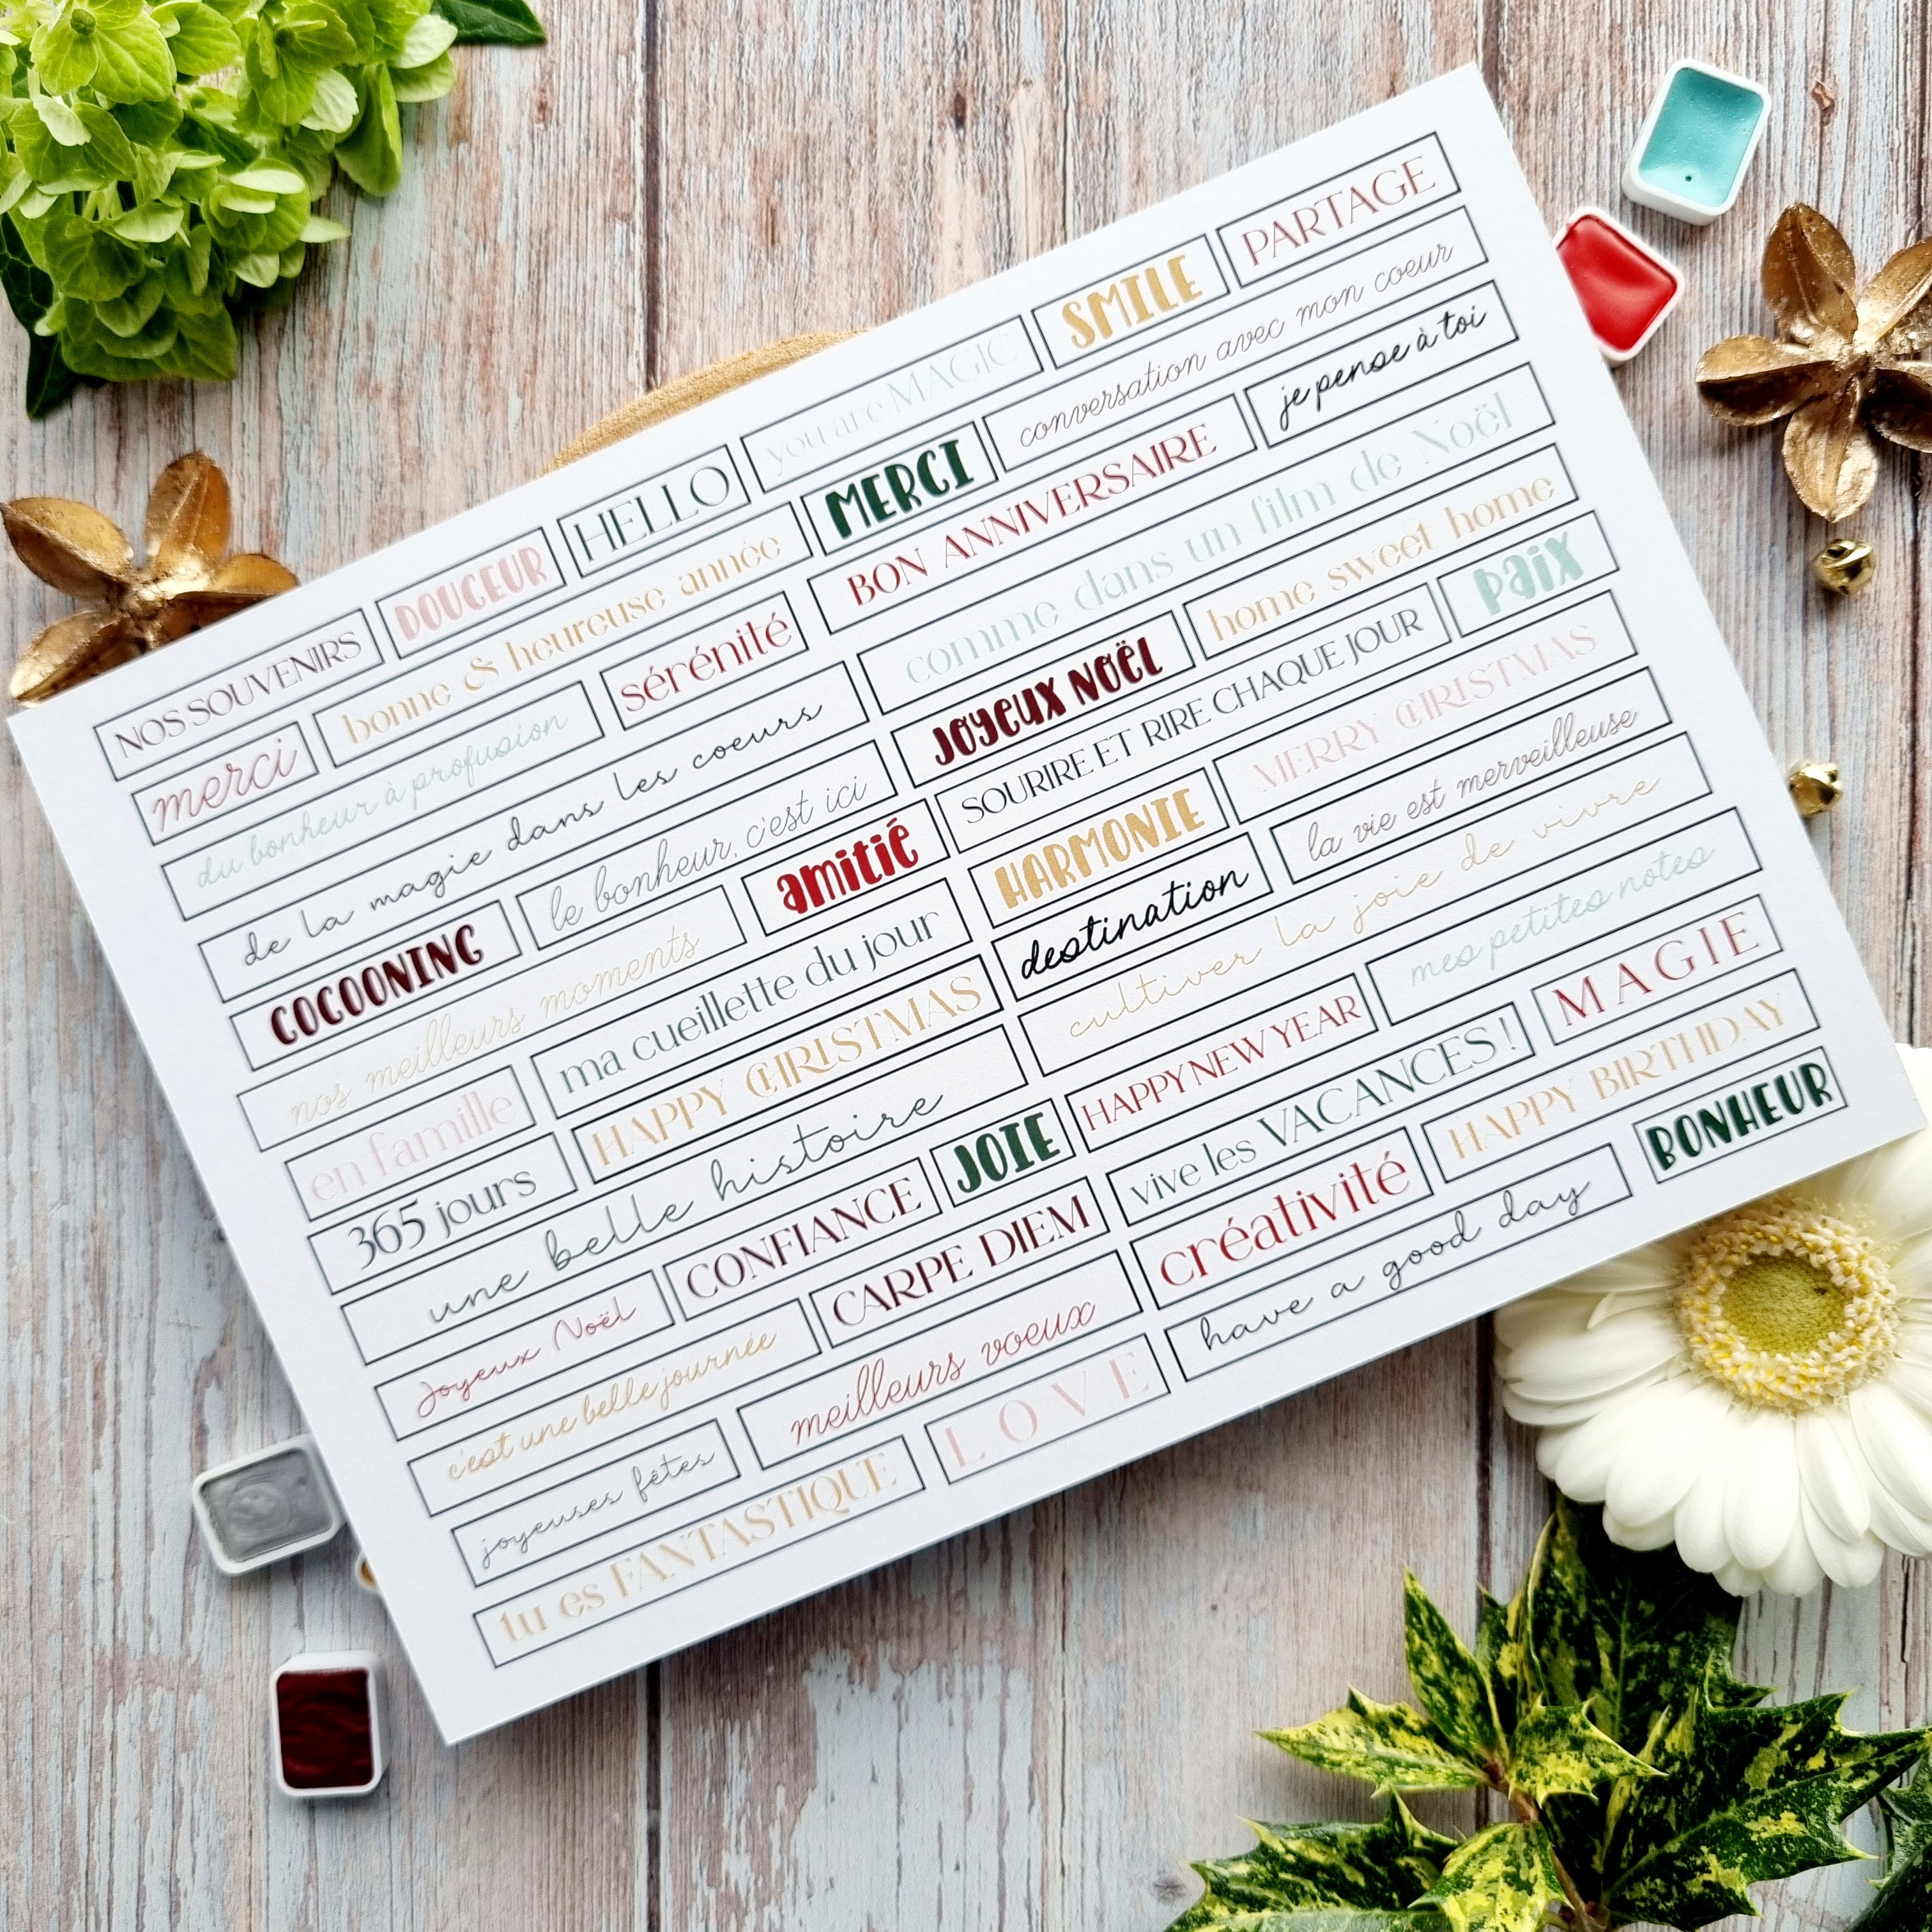 NOS SOUVENIRS DOUCEUR HELLO you are MAGIC SMILE PARTAGE
merci bonne & heureuse année MERCI conversation avec mon coeur
du bonheur à profusion sérénité BON ANNIVERSAIRE je pense à toi
de la magie dans les coeurs comme dans un film de Noël
COCOONING le bonheur, c'est ici JOYEUX NOËL home sweet home
nos meilleurs moments amitié SOURIRE ET RIRE CHAQUE JOUR PAIX
en famille ma cueillette du jour HARMONIE MERRY CHRISTMAS
365 jours HAPPY CHRISTMAS destination la vie est merveilleuse
une belle histoire cultiver la joie de vivre
Joyeux Noël CONFIANCE JOIE HAPPY NEW YEAR mes petites notes
c'est une belle journée CARPE DIEM vive les VACANCES ! MAGIE
joyeuses fêtes meilleurs voeux créativité HAPPY BIRTHDAY
tu es FANTASTIQUE LOVE have a good day BONHEUR